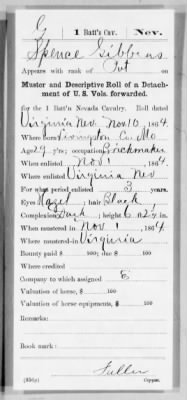 G | 1 Batt'y Cav. | Nev.
Spence Gibbins
Appears with rank of Pvt on
Muster and Descriptive Roll of a Detach-
ment of U. S. Vols. forwarded.
for the 1 Batt'n Nevada Cavalry. Roll dated
Virginia Nev. Nov 10, 1864.
Where born Livingston Co. Mo
Age 29 y'rs; occupation Brickmaker
When enlisted Nov 1, 1864.
Where enlisted Virginia Nev
For what period enlisted 3 years.
Eyes Hazel; hair Black
Complexion Dark; height 6 ft. 2½ in.
When mustered in Nov 1, 1864
Where mustered in Virginia
Bounty paid $ 100; due $ 100
Where credited
Company to which assigned
Valuation of horse, $ 100
Valuation of horse equipments, $ 100
Remarks:
Book mark:
Fuller
(339j) Copyist.